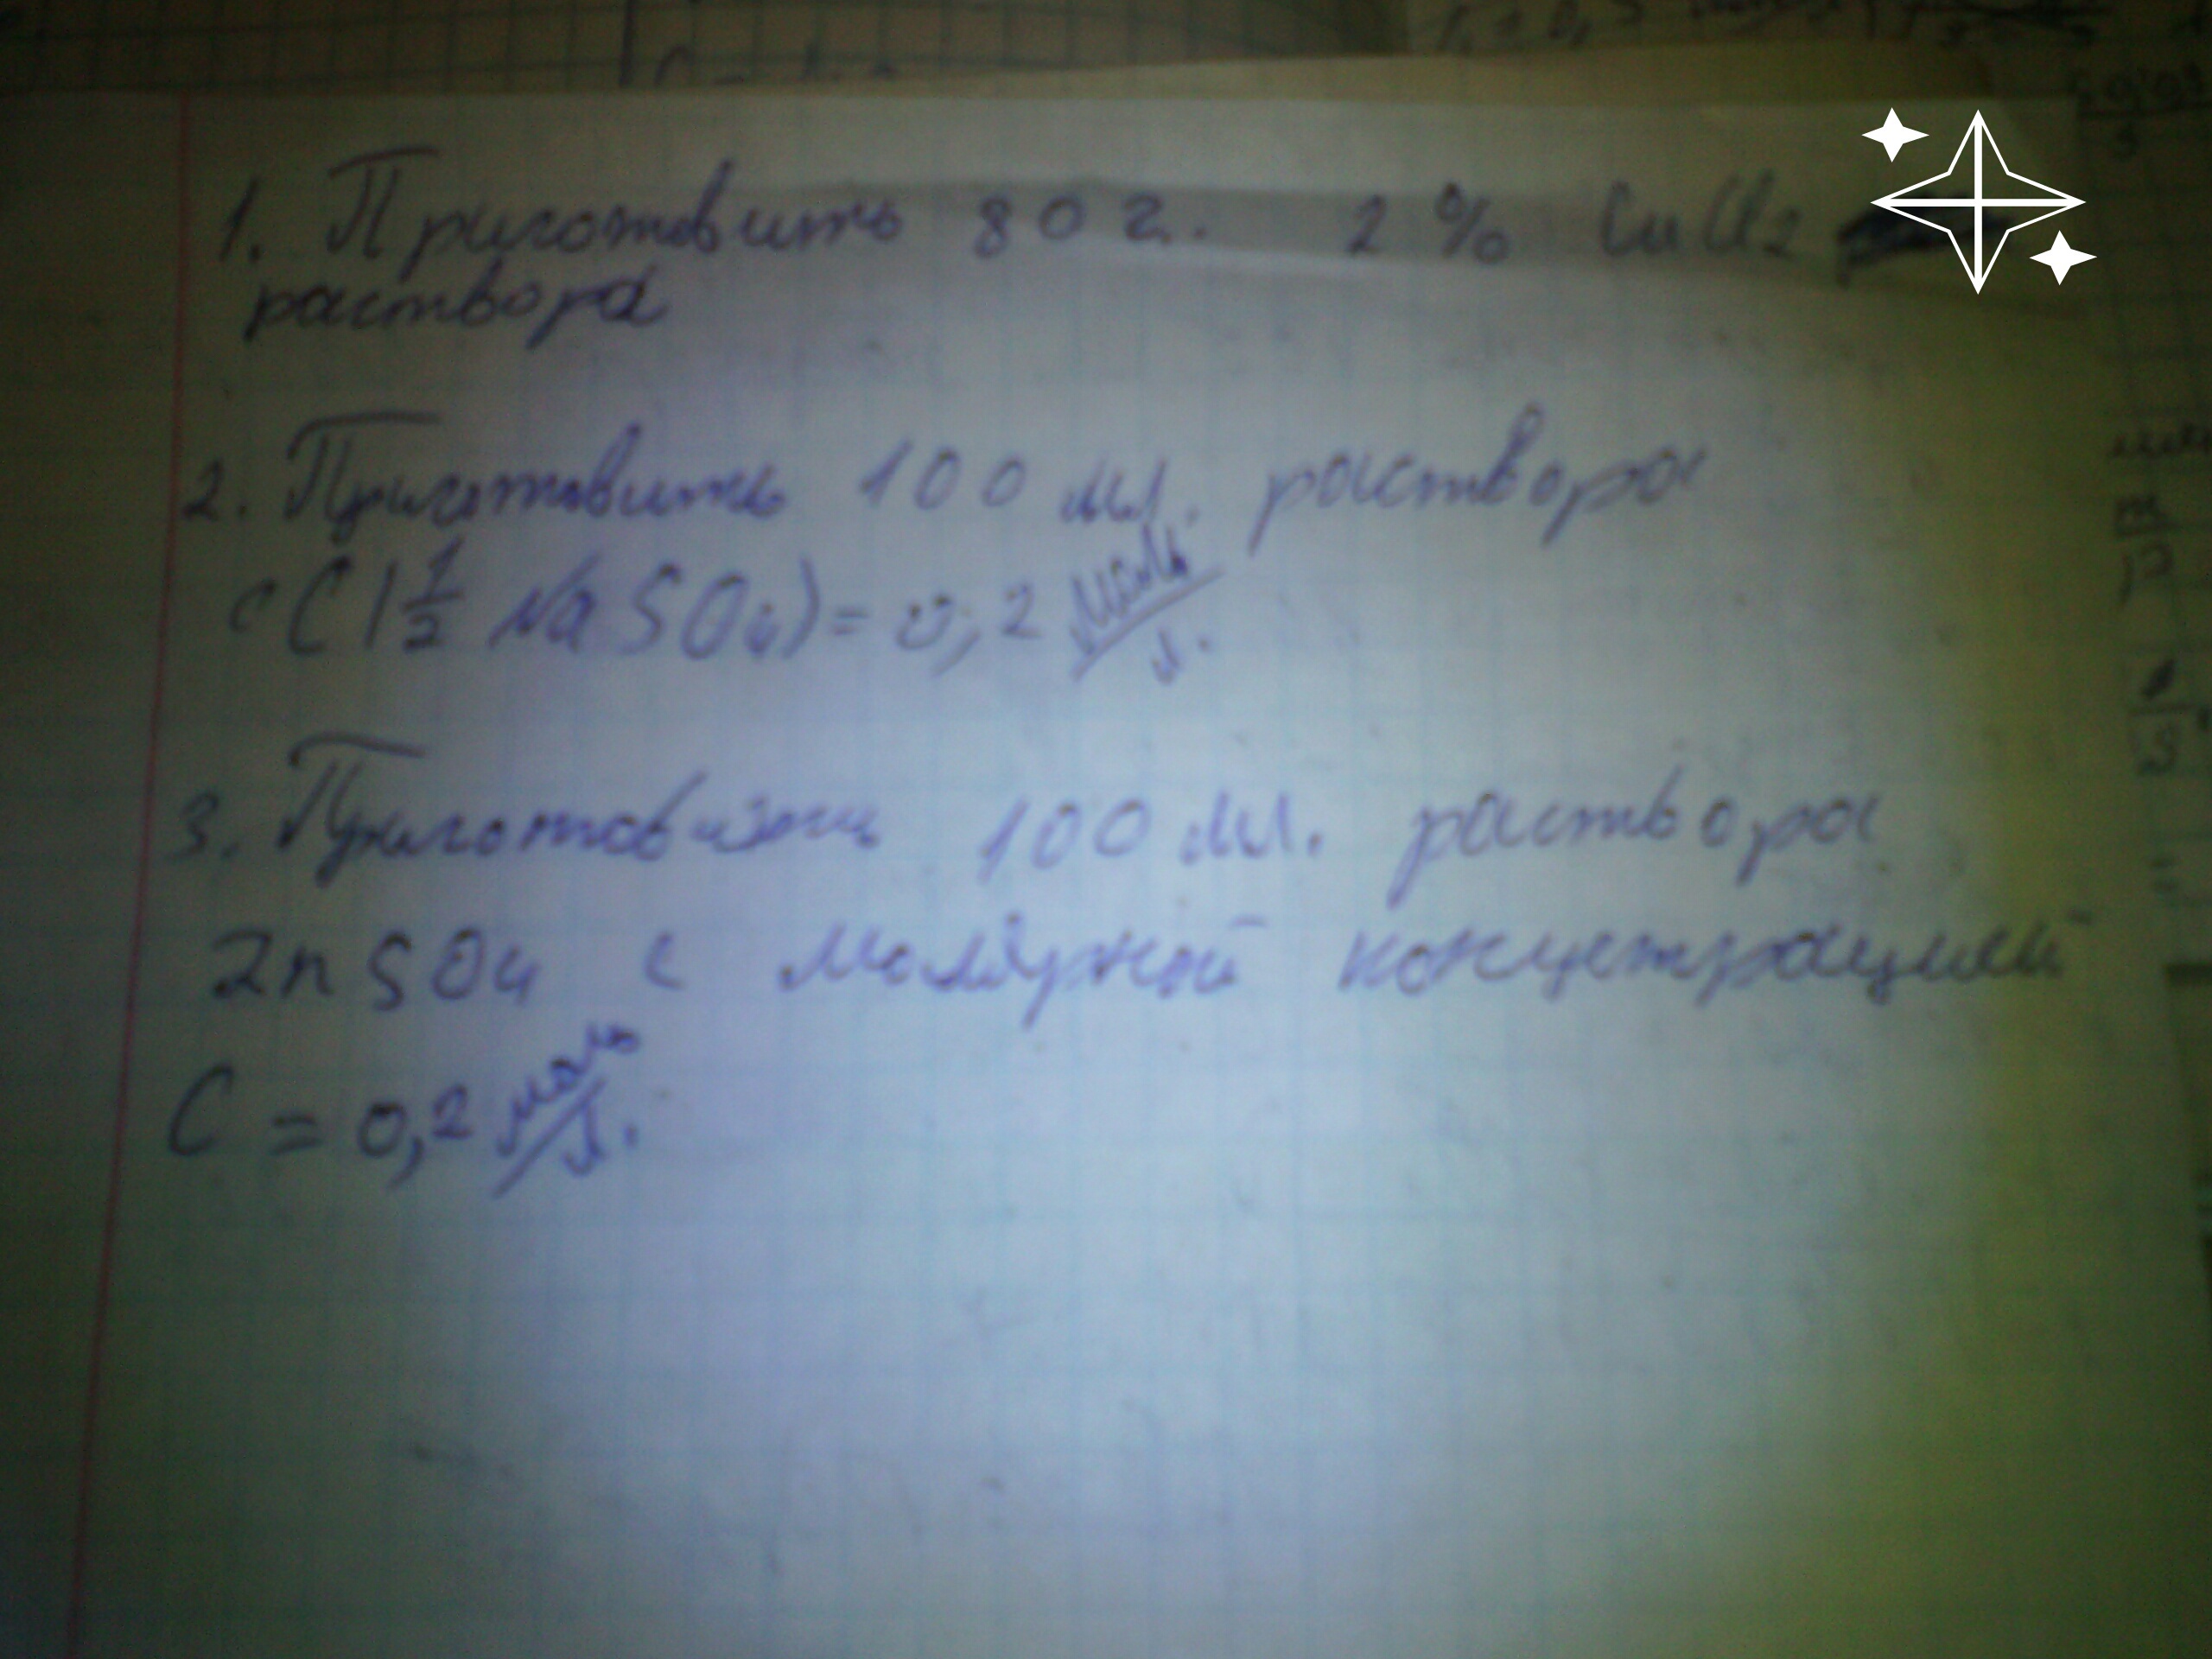 1. Приготовить 80 г. 2 % CuCl2
раствора
2. Приготовить 100 мл. раствора
с C(1 1/2 NaSO4) = 0,2 моль/л.
3. Приготовить 100 мл. раствора
ZnSO4 с молярной концетрацией
C = 0,2 моль/л.